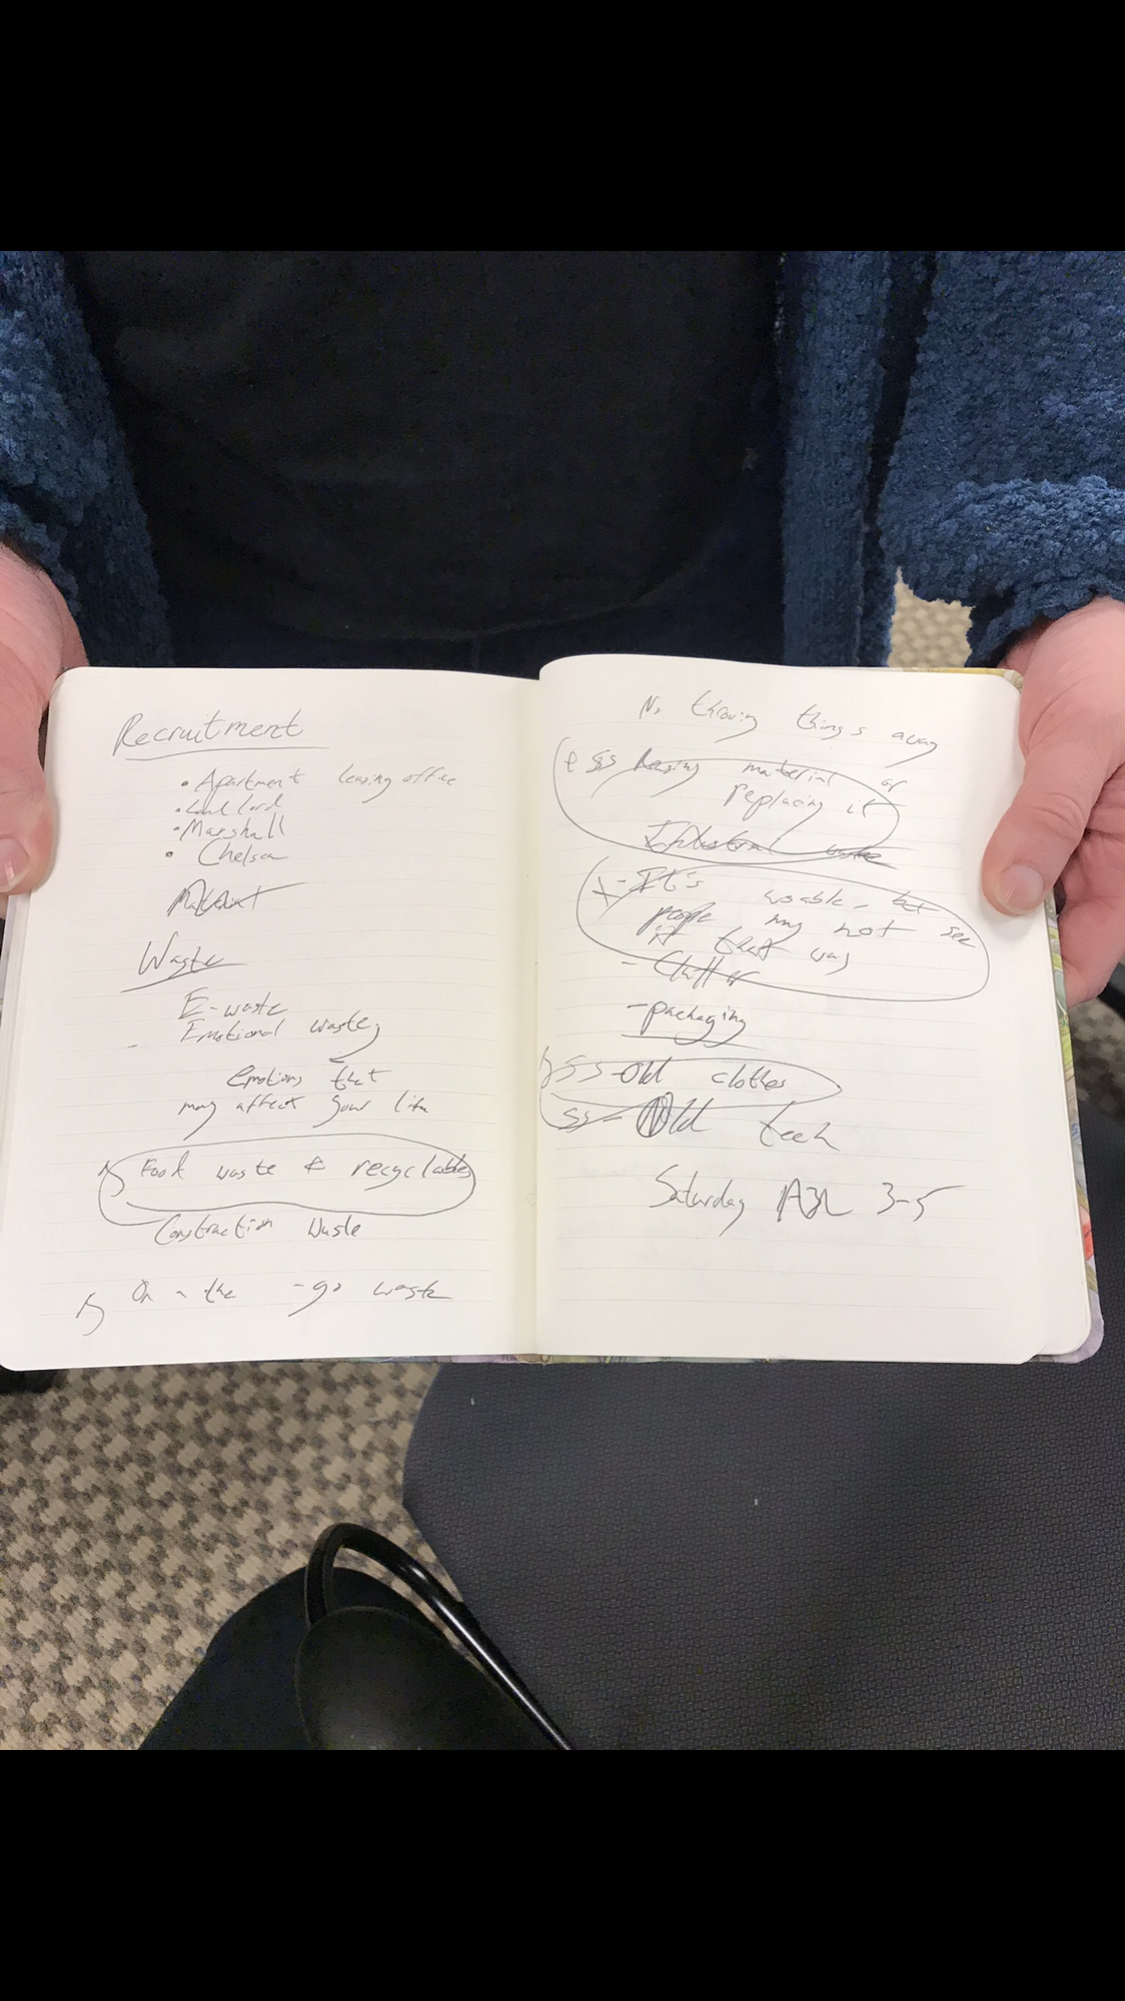 Recruitment
• Apartment leasing office
• Landlord
• Marshall
• Chelsa
Waste
E-waste
Emotional waste,
emotions that
may affect your life
Food waste & recyclables
Construction Waste
On - the - go waste
No throwing things away
material or
replacing it
Industrial waste
- It's usable - but
people may not see
it that way
- Clutter
- packaging
SS - Old clothes
SS - Old tech
Saturday 3-5